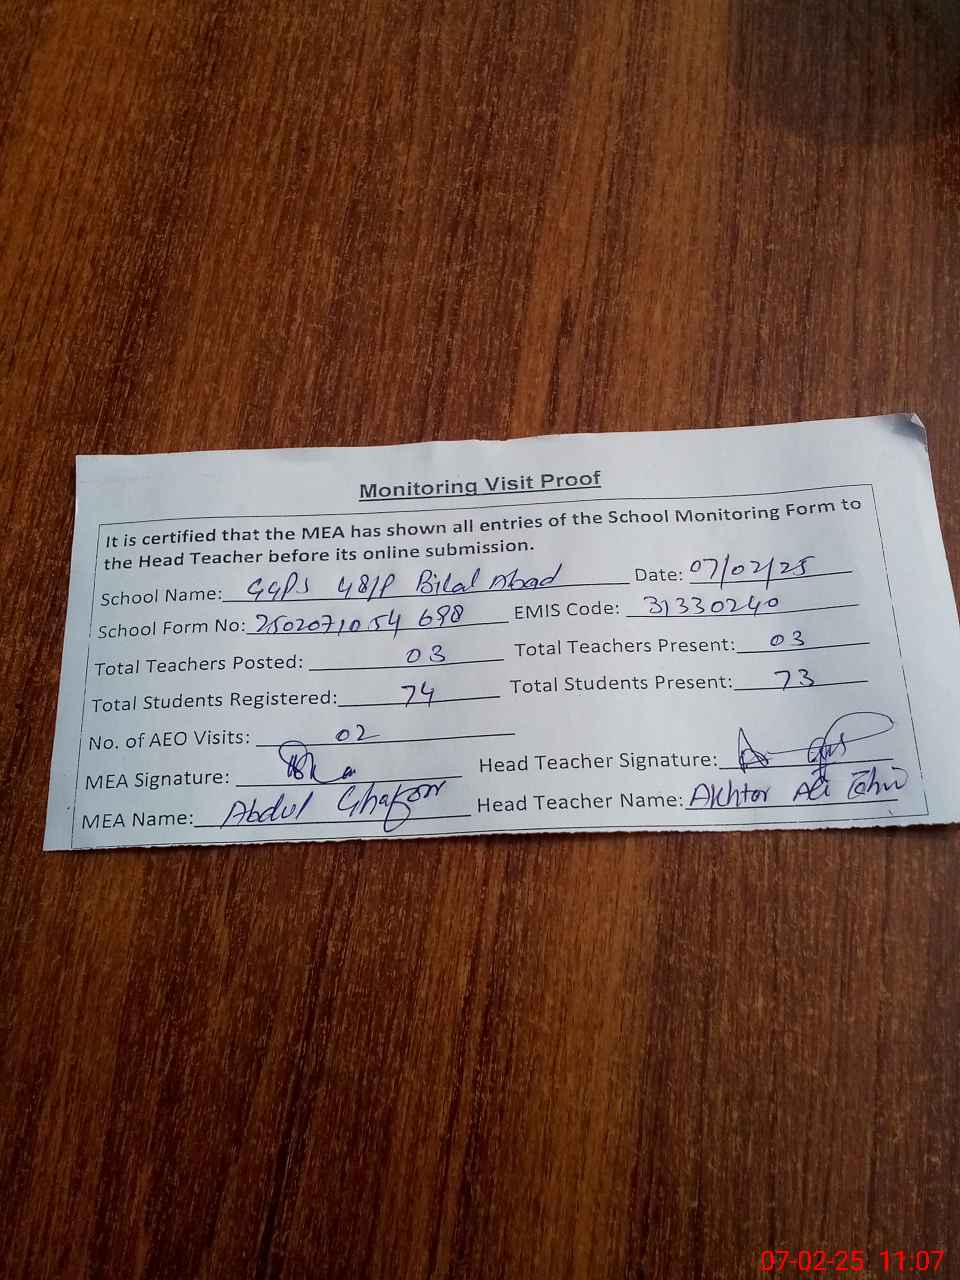 Monitoring Visit Proof
It is certified that the MEA has shown all entries of the School Monitoring Form to
the Head Teacher before its online submission.
School Name: GGPS 48/P Bilal Abad Date: 07/02/25
School Form No: 2502071054 698 EMIS Code: 31330240
Total Teachers Posted: 03 Total Teachers Present: 03
Total Students Registered: 74 Total Students Present: 73
No. of AEO Visits: 02
MEA Signature: Head Teacher Signature:
MEA Name: Abdul Ghafoor Head Teacher Name: Akhtar Ali
07-02-25 11:07